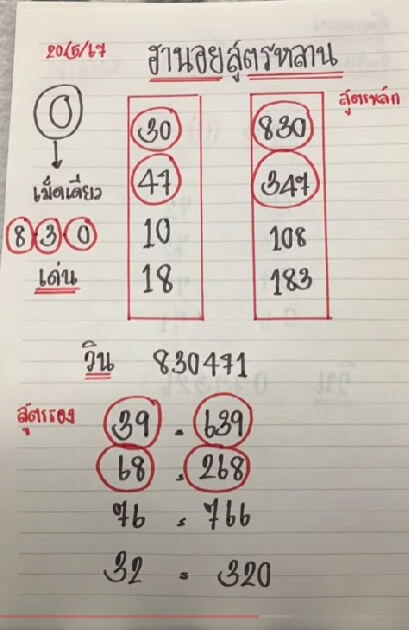 20/5/67
ฮานอยสูตรหลาน
สูตรหลัก
0
30 830
เม็ดเดียว
47 347
8 3 0
10 108
เด่น
18 183
วิน 830471
สูตรรอง
39 - 639
68 - 268
76 = 766
32 = 320